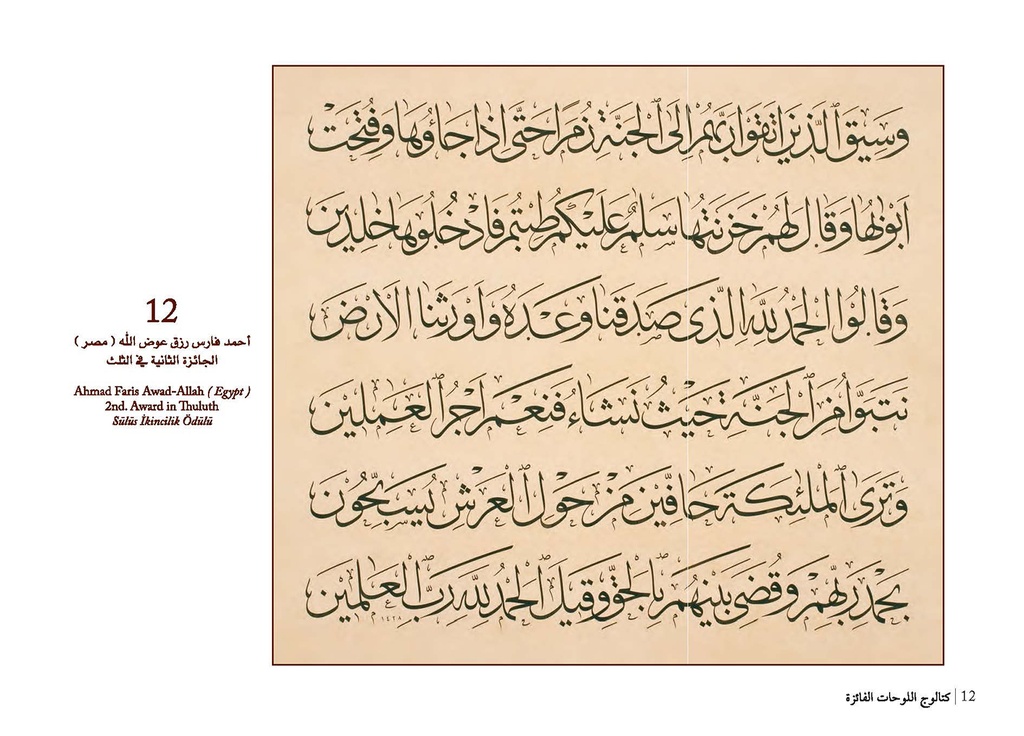 وسيق الذين اتقوا ربهم إلى الجنة زمرا حتى إذا جاؤها وفتحت
أبوبها وقال لهم خزنتها سلم عليكم طبتم فادخلوها خلدين
وقالوا الحمد لله الذي صدقنا وعده وأورثنا الأرض
نتبوأ من الجنة حيث نشاء فنعم أجر العملين
وترى الملئكة حافين من حول العرش يسبحون
بحمد ربهم وقضي بينهم بالحق وقيل الحمد لله رب العلمين
١٤٢٨
12
أحمد فارس رزق عوض الله ( مصر )
الجائزة الثانية في الثلث
Ahmad Faris Awad-Allah ( Egypt )
2nd. Award in Thuluth
Sülüs İkincilik Ödülü
12 | كتالوج اللوحات الفائزة